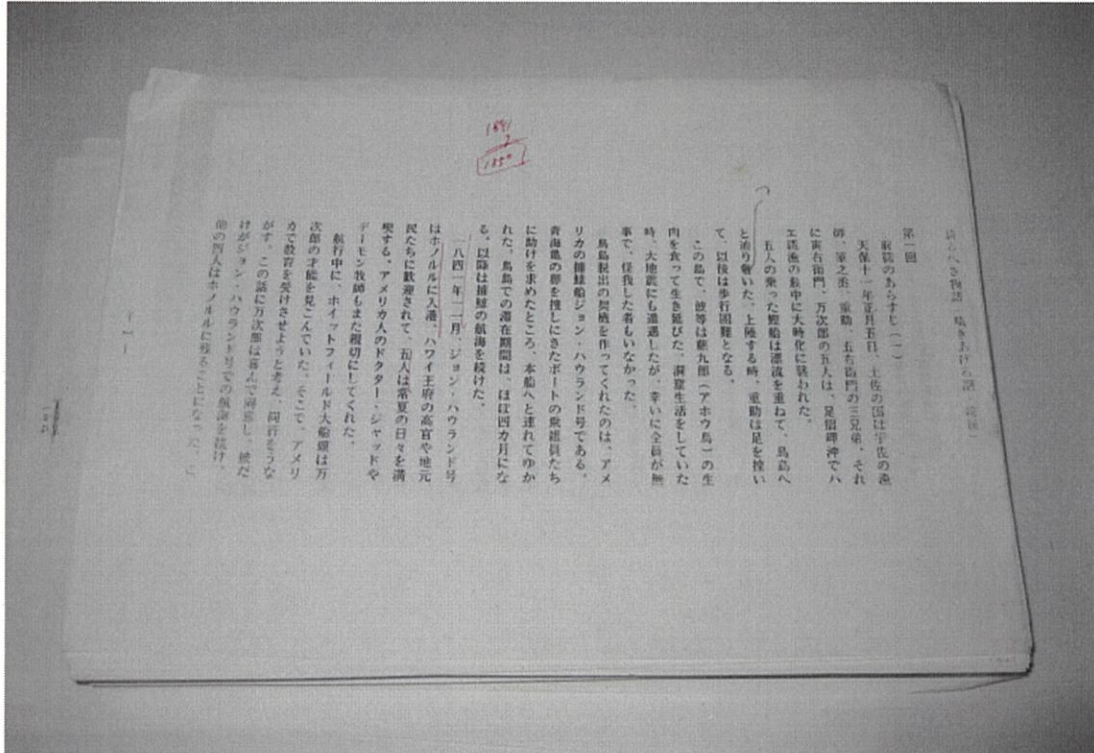 第一回
前篇のあらすじ(一)
天保十一年正月五日、土佐の国は宇佐の漁
師、筆之丞、重助、五右衛門の三兄弟、それ
に寅右衛門、万次郎の五人は、足摺岬沖でハ
エ縄漁の最中に大時化に襲われた。
五人の乗った鰹船は漂流を重ねて、鳥島へ
と辿り着いた。上陸する時、重助は足を挫い
て、以後は歩行困難となる。
この島で、彼等は藤九郎(アホウ鳥)の生
肉を食って生き延びた。洞窟生活をしていた
時、大地震にも遭遇したが、幸いに全員が無
事で、怪我した者もいなかった。
鳥島脱出の契機を作ってくれたのは、アメ
リカの捕鯨船ジョン・ハウランド号である。
青海亀の卵を捜しにきたボートの乗組員たち
に助けを求めたところ、本船へと連れてゆか
れた。鳥島での滞在期間は、ほぼ四カ月にな
る。以降は捕鯨の航海を続けた。
一八四一年一一月、ジョン・ハウランド号
はホノルルに入港。ハワイ王府の高官や地元
民たちに歓迎されて、五人は常夏の日々を満
喫する。アメリカ人のドクター・ジャッドや
デーモン牧師もまた親切にしてくれた。
航行中に、ホイットフィールド大船頭は万
次郎の才能を見こんでいた。そこで、アメリ
カで教育を受けさせようと考え、同行をうな
がす。この話に万次郎は喜んで同意し、彼だ
けがジョン・ハウランド号での航海を続け、
他の四人はホノルルに残ることになった。
1841
1850